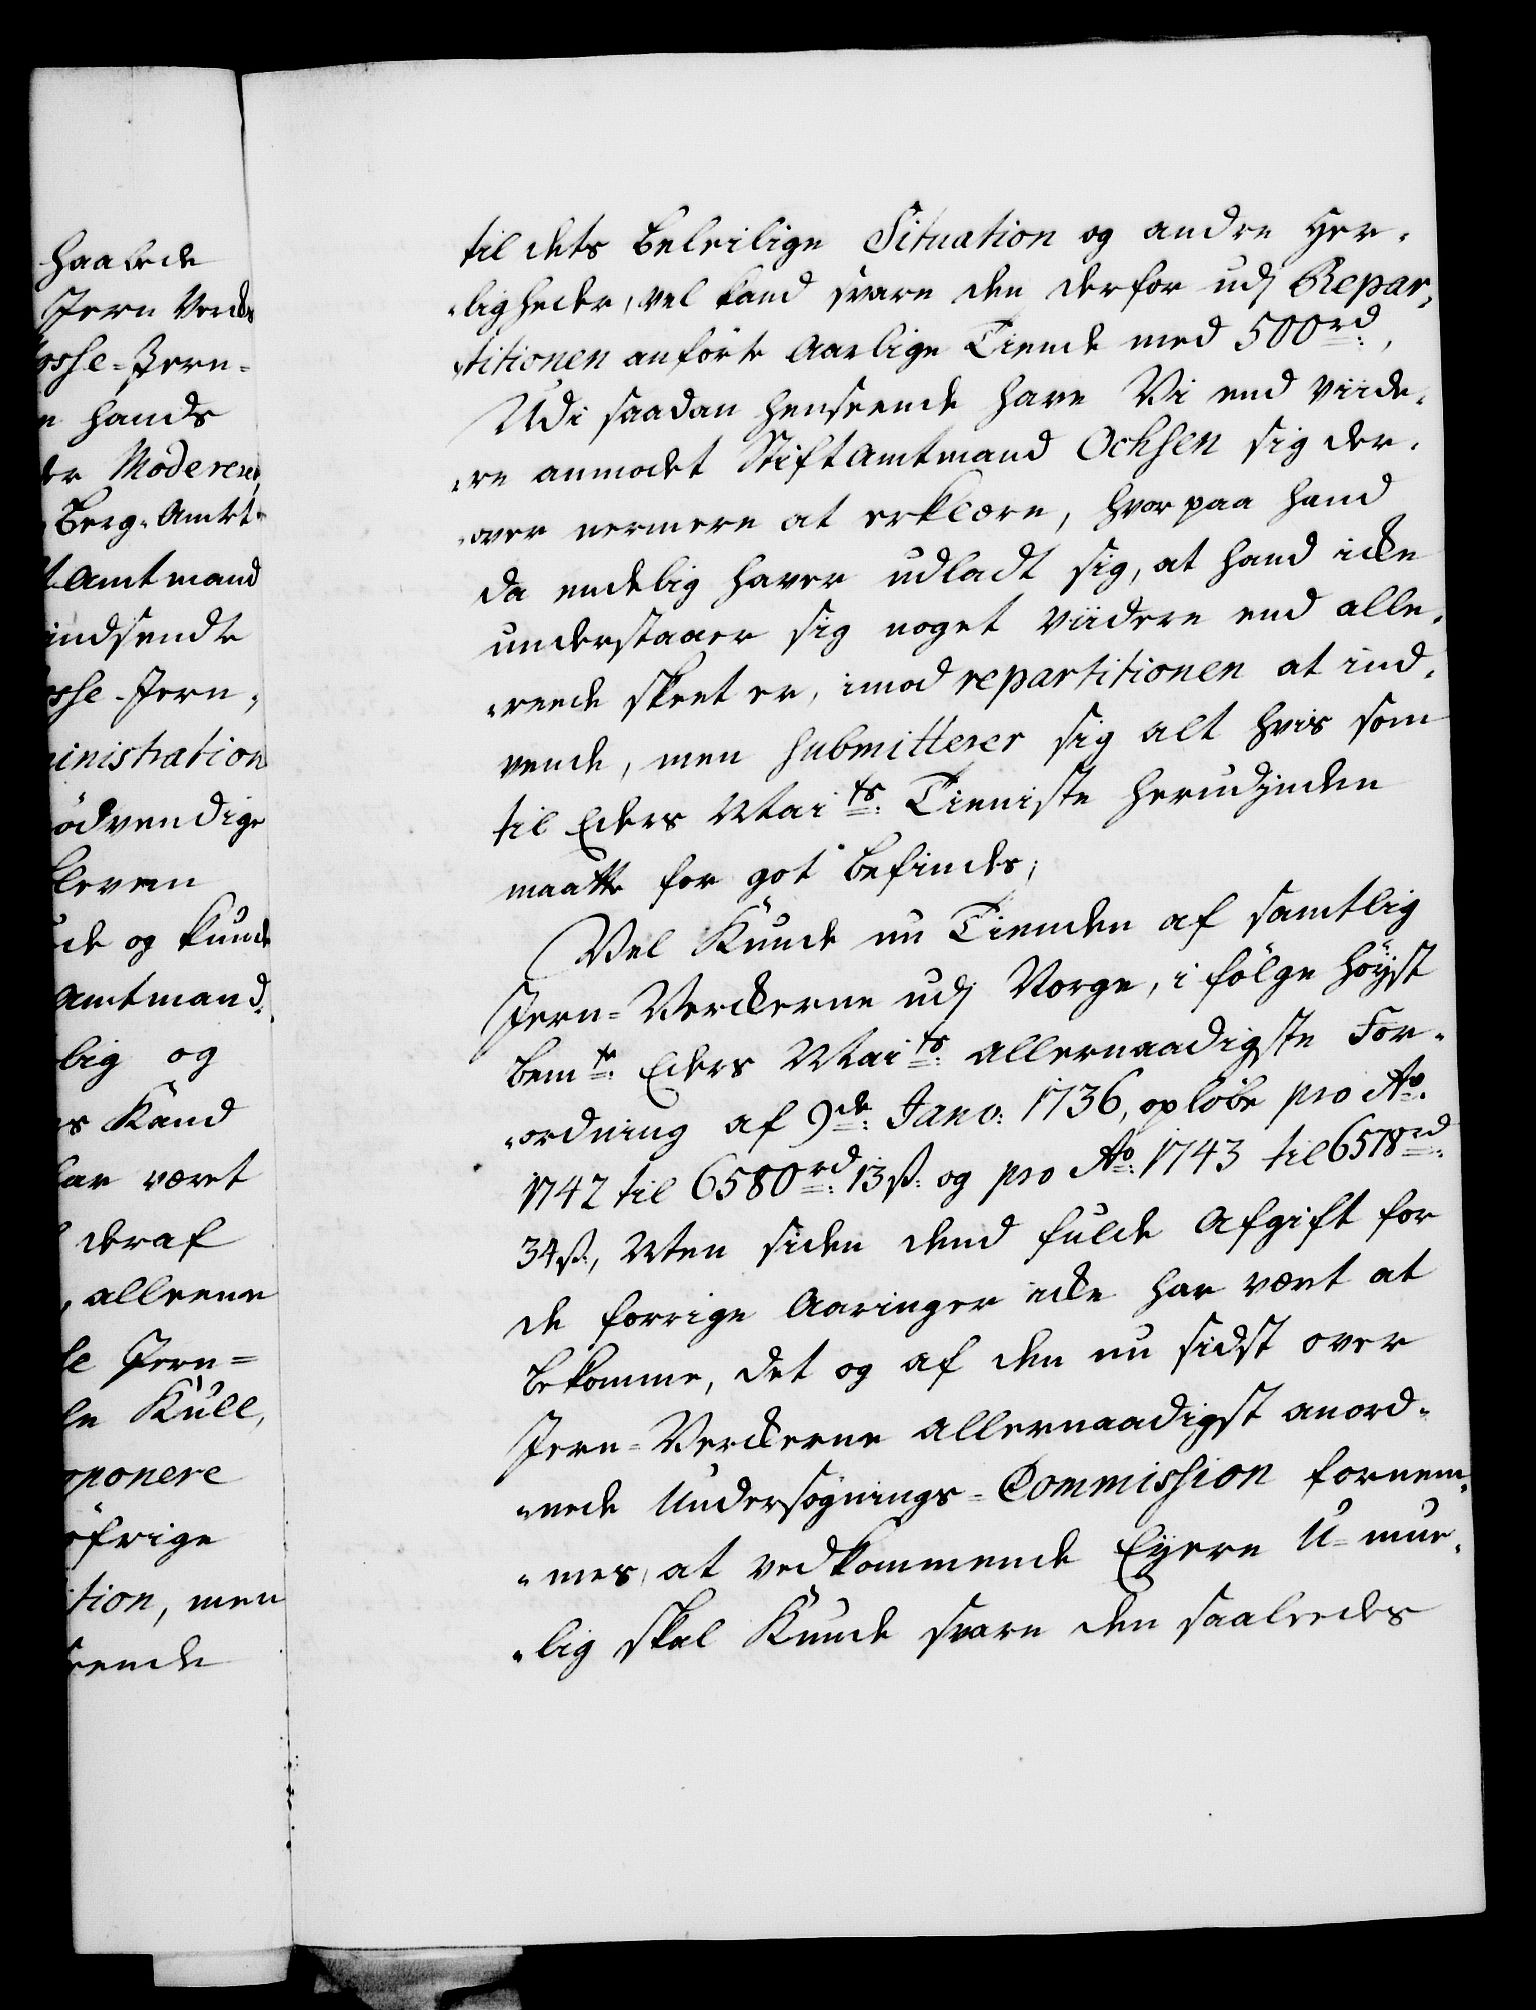 haalede
Jern Verks
osse-Jern-
n hands
der Moderere,
Berg-Amt
t Amtmand
indsendte
osse-Jern-
inistration
ödvendige
bleven
de og kunde
Amtmand
lig og
es Kand
har været
deraf
, alleene
le Jern=
le Kull,
oponere
öfrige
tion, men
eende
til dets beleilige Situation og andre Her-
-ligheder, vel kand svare den derfor udj Repar-
-titionen anförte Aarlige Tiende med 500rd,
Udi saadan henseende have Vi end viide-
-re anmodet Stiftamtmand Ochsen sig der-
-over nermere at erklære, hvor paa hand
da endelig haver udladt sig, at hand icke
understaaer sig noget viidere end alle-
-reede skeet er, imod repartitionen at ind-
vende, men submitterer sig alt hvis som
til Eders Maits Tieniste herudjnden
maatte for got befindes;
Vel Kunde nu Tienden af samtlig
Jern-Verckerne udj Norge, i fölge höyst
bemte Eders Maits allernaadigste For-
-ordning af 9de Janv: 1736, oplöbe pro Ao
1742 til 6580rd 13ß: og pro Ao: 1743 til 6578rd
34ß:, Men siden dend fulde Afgift for
de forrige Aaringer icke har vært at
bekomme, det og af den nu sidst over
Jern-Verckerne allernaadigst anord-
-nede Undersögnings-Commission fornem-
-mes, at vedkommende Eyere U-mue-
-lig skal Kunde svare den saaledes